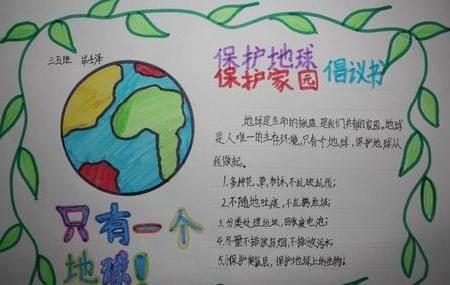 三五班
保护地球
保护家园 倡议书
地球是生命的摇篮,是我们共有的家园。地球
是人唯一的生存环境,只有个地球,保护地球从
我做起。
1.多种花、草、树木,不乱砍乱伐;
2.不随地吐痰,不乱扔垃圾;
3.分类处理垃圾,回收废电池;
4.尽量不排放易烟,不排放污水;
5.保护,保护地球上的生物。
只有一个
地球!